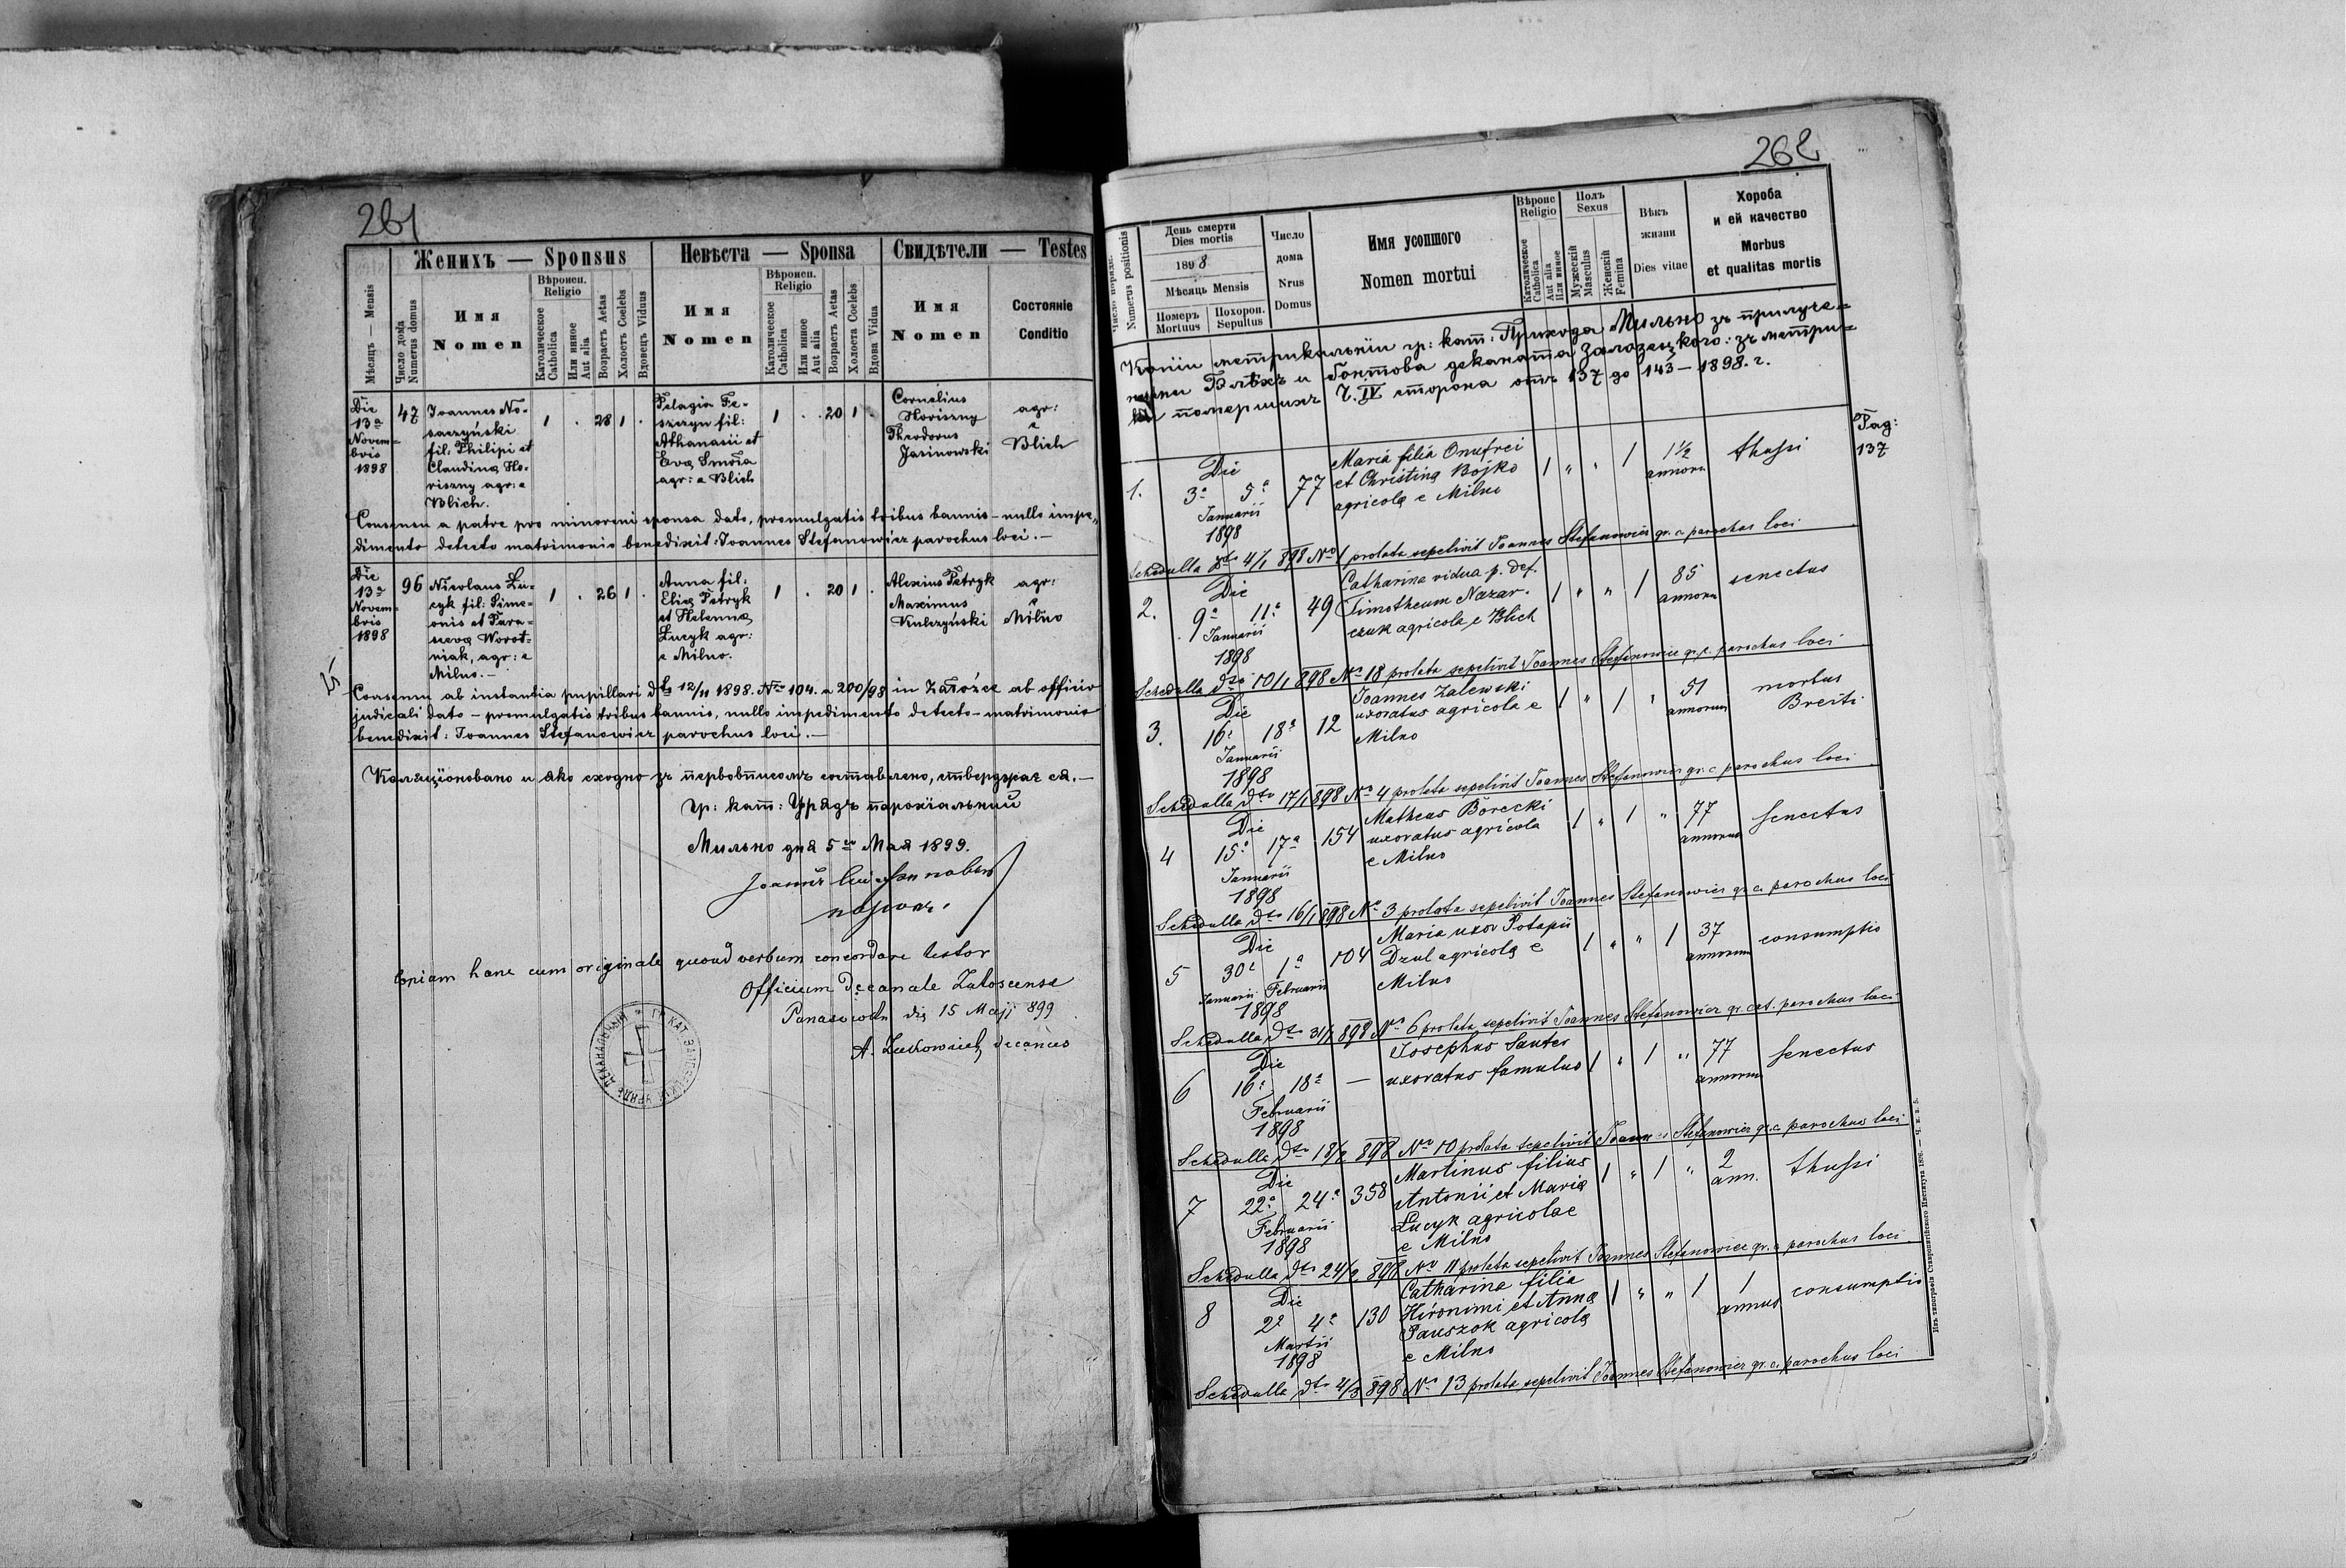 261
Женихъ — Sponsus
Невѣста — Sponsa
Свидѣтели — Testes
Мѣсяцъ — Mensis
Число дома
Numerus domus
Имя
Nomen
Вѣроисп.
Religio
Католическое
Catholica
Или инное
Aut alia
Возрастъ Aetas
Холостъ Coelebs
Вдовецъ Viduus
Имя
Nomen
Вѣроисп.
Religio
Католическое
Catholica
Или инное
Aut alia
Возрастъ Aetas
Холоста Coelebs
Вдова Vidua
Имя
Nomen
Состояніе
Conditio
Die
13ª
Novem-
bris
1898
47
Joannes No-
saczyński
fil: Philipi et
Claudinę Ho-
riszny agr: e
Blich.
1 . 28 1 .
Pelagia Fe-
szczyn fil:
Athanasii et
Evę Smola
agr: e Blich
1 . . 20 1 .
Cornelius
Horiszny
Theodorus
Jasinowski
agr:
e
Blich
Consensu a patre pro minoreni sponsa dato, promulgatis tribus bannis – nullo impe-
dimento detecto matrimonio benedixit: Joannes Stefanowicz parochus loci. –
Die
13ª
Novem-
bris
1898
96
Nicolaus Łu-
cyk fil: Sime-
onis et Para-
scevę Worot-
niak, agr: e
Milno. –
1 . 26 1 .
Anna fil:
Elię Petryk
et Helennę
Łucyk agr:
e Milno.
1 . 20 1 .
Alexius Petryk
Maximus
Kulczyński
agr:
e
Milno
Consensu ab instantia pupillari dto 12/11 1898. Nro 104. a 200/98 in Załoźce ab officio
judiciali dato – promulgatis tribus bannis, nullo impedimento detecto – matrimonio
benedixit: Joannes Stefanowicz parochus loci. –
Коляціоновано и яко сходно зъ первописомъ составлено, ствердждає ся. –
Гр: кат: Урядъ парохіальный
Мильно дня 5го Мая 1899.
Copiam hanc cum originale quoad verbum concordare testor
Officium Decanale Załoscense
Panasówka dię 15 Maji 899
decanus
262
Число порядк.
Numerus positionis
День смерти
Dies mortis
1898
Мѣсяць Mensis
Померъ
Mortuus
Похорон.
Sepultus
Число
дома
Nrus
Domus
Имя усопшого
Nomen mortui
Вѣроис
Religio
Католическое
Catholica
Aut alia
Или иное
Полъ
Sexus
Мужескій
Masculus
Женскій
Femina
Вѣкъ
жизни
Dies vitae
Хороба
и ей качество
Morbus
et qualitas mortis
Копіи метрикальніи гр: кат: Прихода Мильно зъ прилуче-
нями Блѣхъ и Гонтова деканата Залозецкого: зъ метри-
ки помершихъ Ч. IV сторона отъ 137 до 143 – 1898. г.
Pag:
137
1.
Die
3ª 5ª
Januarii
1898
77
Maria filia Onufrei
et Christinę Bojko
agricolę e Milno
1 " . 1
1½
annorum
thussi
Schedulla dto 4/1 898 No 1 prolata sepelivit Joannes Stefanowicz gr. c. parochus loci
2.
Die
9ª 11ª
Januarii
1898
49
Catharina vidua p. def.
Timotheum Nazar-
czuk agricola e Blich
1 " " 1
85
annorum
senectus
Schedulla dto 10/1 898 No 18 prolata sepelivit Joannes Stefanowicz gr. c. parochus loci
3.
Die
16ª 18ª
Januarii
1898
12
Joannes Zalewski
uxoratus agricola e
Milno
1 " 1 "
51
annorum
morbus
Breiti
Schedulla dto 17/1 898 No 4 prolata sepelivit Joannes Stefanowicz gr. c. parochus loci
4
Die
15ª 17ª
Januarii
1898
154
Matheus Borecki
uxoratus agricola
e Milno
1 " 1 "
77
annorum
senectus
Schedulla dto 16/1 898 No 3 prolata sepelivit Joannes Stefanowicz gr. c. parochus loci
5
Die
30ª 1ª
Januarii Februarii
1898
104
Maria uxor Potapii
Dzul agricolę e
Milno
1 " " 1
37
annorum
consumptio
Schedulla dto 31/1 898 No 6 prolata sepelivit Joannes Stefanowicz gr. cat. parochus loci
6
Die
16ª 18ª
Februarii
1898
—
Josephus Sauter
uxoratus famulus
1 " 1 "
77
annorum
senectus
Schedulla dto 18/2 898 No 10 prolata sepelivit Joannes Stefanowicz gr. c. parochus loci
7
Die
22ª 24ª
Februarii
1898
358
Martinus filius
Antonii et Marię
Łucyk agricolae
e Milno
1 " 1 "
2
ann.
thussi
Schedulla dto 24/2 898 No 11 prolata sepelivit Joannes Stefanowicz gr. c. parochus loci
8
Die
2ª 4ª
Martii
1898
130
Catharina filia
Hironimi et Annę
Pauszok agricolę
e Milno
1 " " 1
1
annus
consumptio
Schedulla dto 4/3 898 No 13 prolata sepelivit Joannes Stefanowicz gr. c. parochus loci
Изъ типографіи Ставропигійского Института 1896.